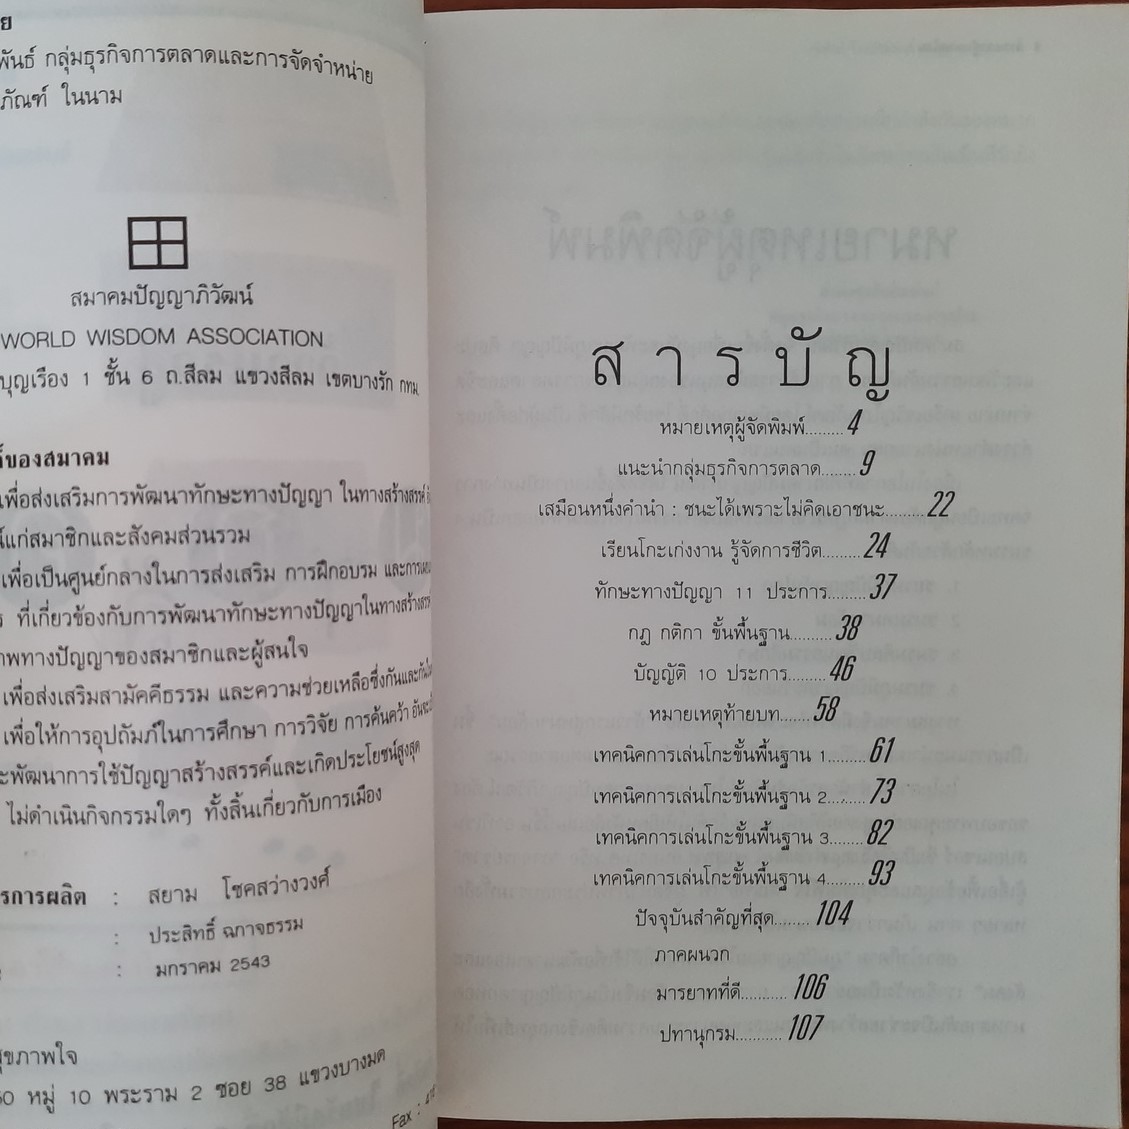 พันธ์ กลุ่มธุรกิจการตลาดและการจัดจำหน่าย
ภัณฑ์ ในนาม
สมาคมปัญญาภิวัฒน์
WORLD WISDOM ASSOCIATION
บุญเรือง 1 ชั้น 6 ถ.สีลม แขวงสีลม เขตบางรัก กทม.
ของสมาคม
เพื่อส่งเสริมการพัฒนาทักษะทางปัญญา ในทางสร้างสรรค์
แก่สมาชิกและสังคมส่วนรวม
เพื่อเป็นศูนย์กลางในการส่งเสริม การฝึกอบรม
ที่เกี่ยวข้องกับการพัฒนาทักษะทางปัญญาในทางสร้างสรร
าพทางปัญญาของสมาชิกและผู้สนใจ
เพื่อส่งเสริมสามัคคีธรรม และความช่วยเหลือซึ่งกันและกัน
เพื่อให้การอุปถัมภ์ในการศึกษา การวิจัย การค้นคว้า
ะพัฒนาการใช้ปัญญาสร้างสรรค์และเกิดประโยชน์สูงสุด
ไม่ดำเนินกิจกรรมใดๆ ทั้งสิ้นเกี่ยวกับการเมือง
รการผลิต : สยาม โชคสว่างวงศ์
: ประสิทธิ์ ฉกาจธรรม
: มกราคม 2543
สุขภาพใจ
50 หมู่ 10 พระราม 2 ซอย 38 แขวงบางมด
Fax :
สารบัญ
หมายเหตุผู้จัดพิมพ์.........4
แนะนำกลุ่มธุรกิจการตลาด........9
เสมือนหนึ่งคำนำ : ชนะได้เพราะไม่คิดเอาชนะ.........22
เรียนโกะเก่งงาน รู้จัดการชีวิต.........24
ทักษะทางปัญญา 11 ประการ.........37
กฎ กติกา ขั้นพื้นฐาน..........38
บัญญัติ 10 ประการ.........46
หมายเหตุท้ายบท.......58
เทคนิคการเล่นโกะขั้นพื้นฐาน 1.........61
เทคนิคการเล่นโกะขั้นพื้นฐาน 2.........73
เทคนิคการเล่นโกะขั้นพื้นฐาน 3........82
เทคนิคการเล่นโกะขั้นพื้นฐาน 4.........93
ปัจจุบันสำคัญที่สุด........104
ภาคผนวก
มารยาทที่ดี...........106
ปทานุกรม...........107